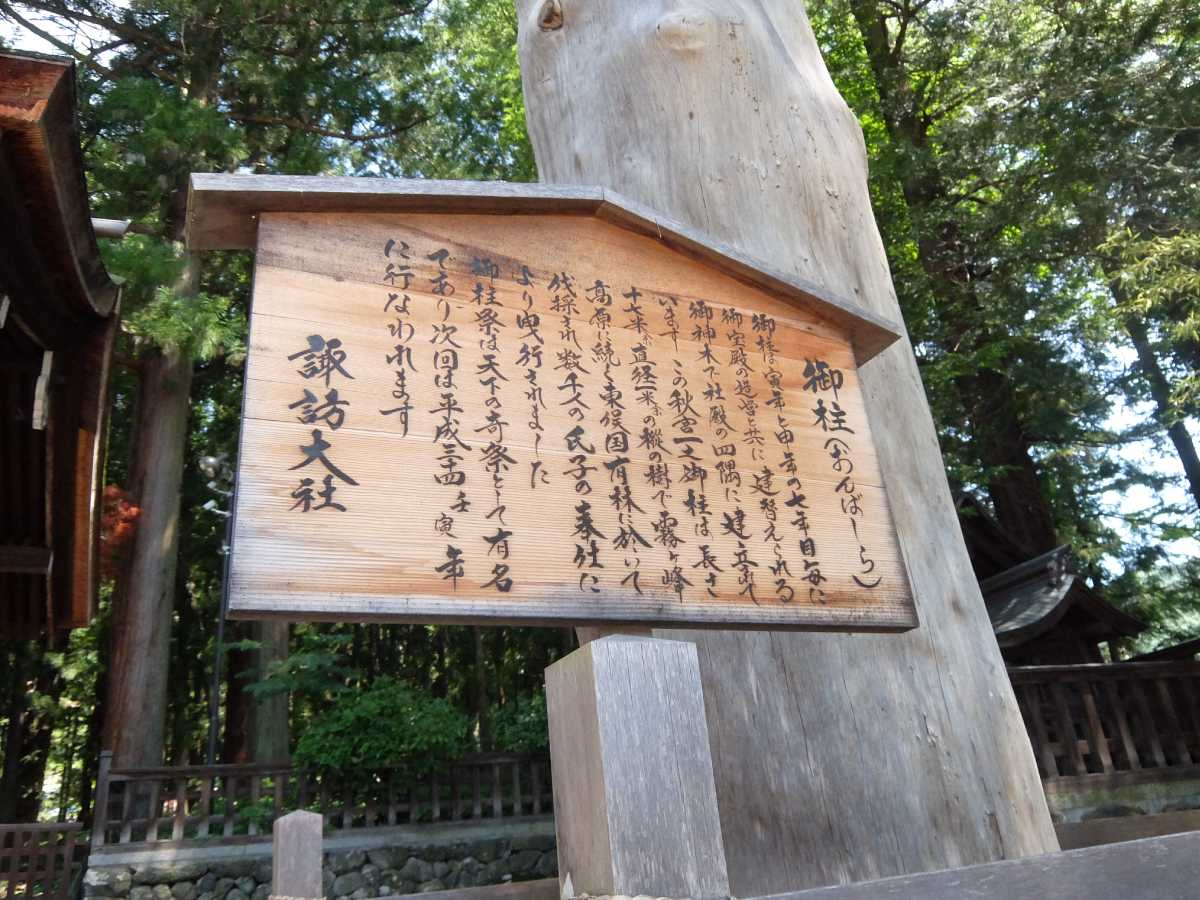 御柱(おんばしら)
御柱は寅年と申年の七年目毎に
御宝殿の造営と共に建替えられる
御神木で社殿の四隅に建立されて
います この秋宮一之御柱は長さ
十七米、直径一米の樅の樹で霧ヶ峰
高原に続く東俣国有林に於いて
伐採され数千人の氏子の奉仕に
より曳行されました
御柱祭は天下の奇祭として有名
であり次回は平成三四壬寅年
に行なわれます
諏訪大社